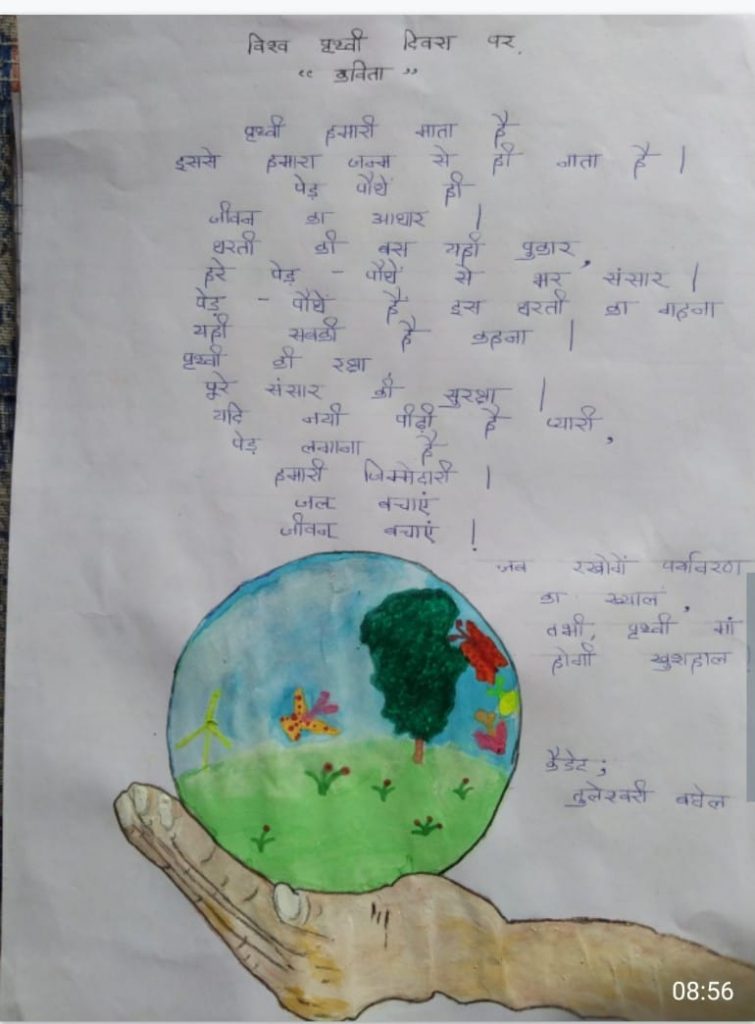 विश्व पृथ्वी दिवस पर.
“ कविता ”
पृथ्वी हमारी माता है
इससे हमारा जन्म से ही नाता है |
पेड़ पौधें ही
जीवन का आधार |
धरती की बस यही पुकार,
हरे पेड़ - पौधें से भर संसार |
पेड़ - पौधें हैं इस धरती का गहना
यही सबकी है कहना |
पृथ्वी की रक्षा
पूरे संसार की सुरक्षा |
यदि नयी पीढ़ी है प्यारी,
पेड़ लगाना है
हमारी जिम्मेदारी |
जल बचाएं
जीवन बचाएं |
जब रखोगें पर्यावरण
का ख्याल,
तभी, पृथ्वी माँ
होगी खुशहाल
कैडेट;
तुलेश्वरी बघेल
08:56